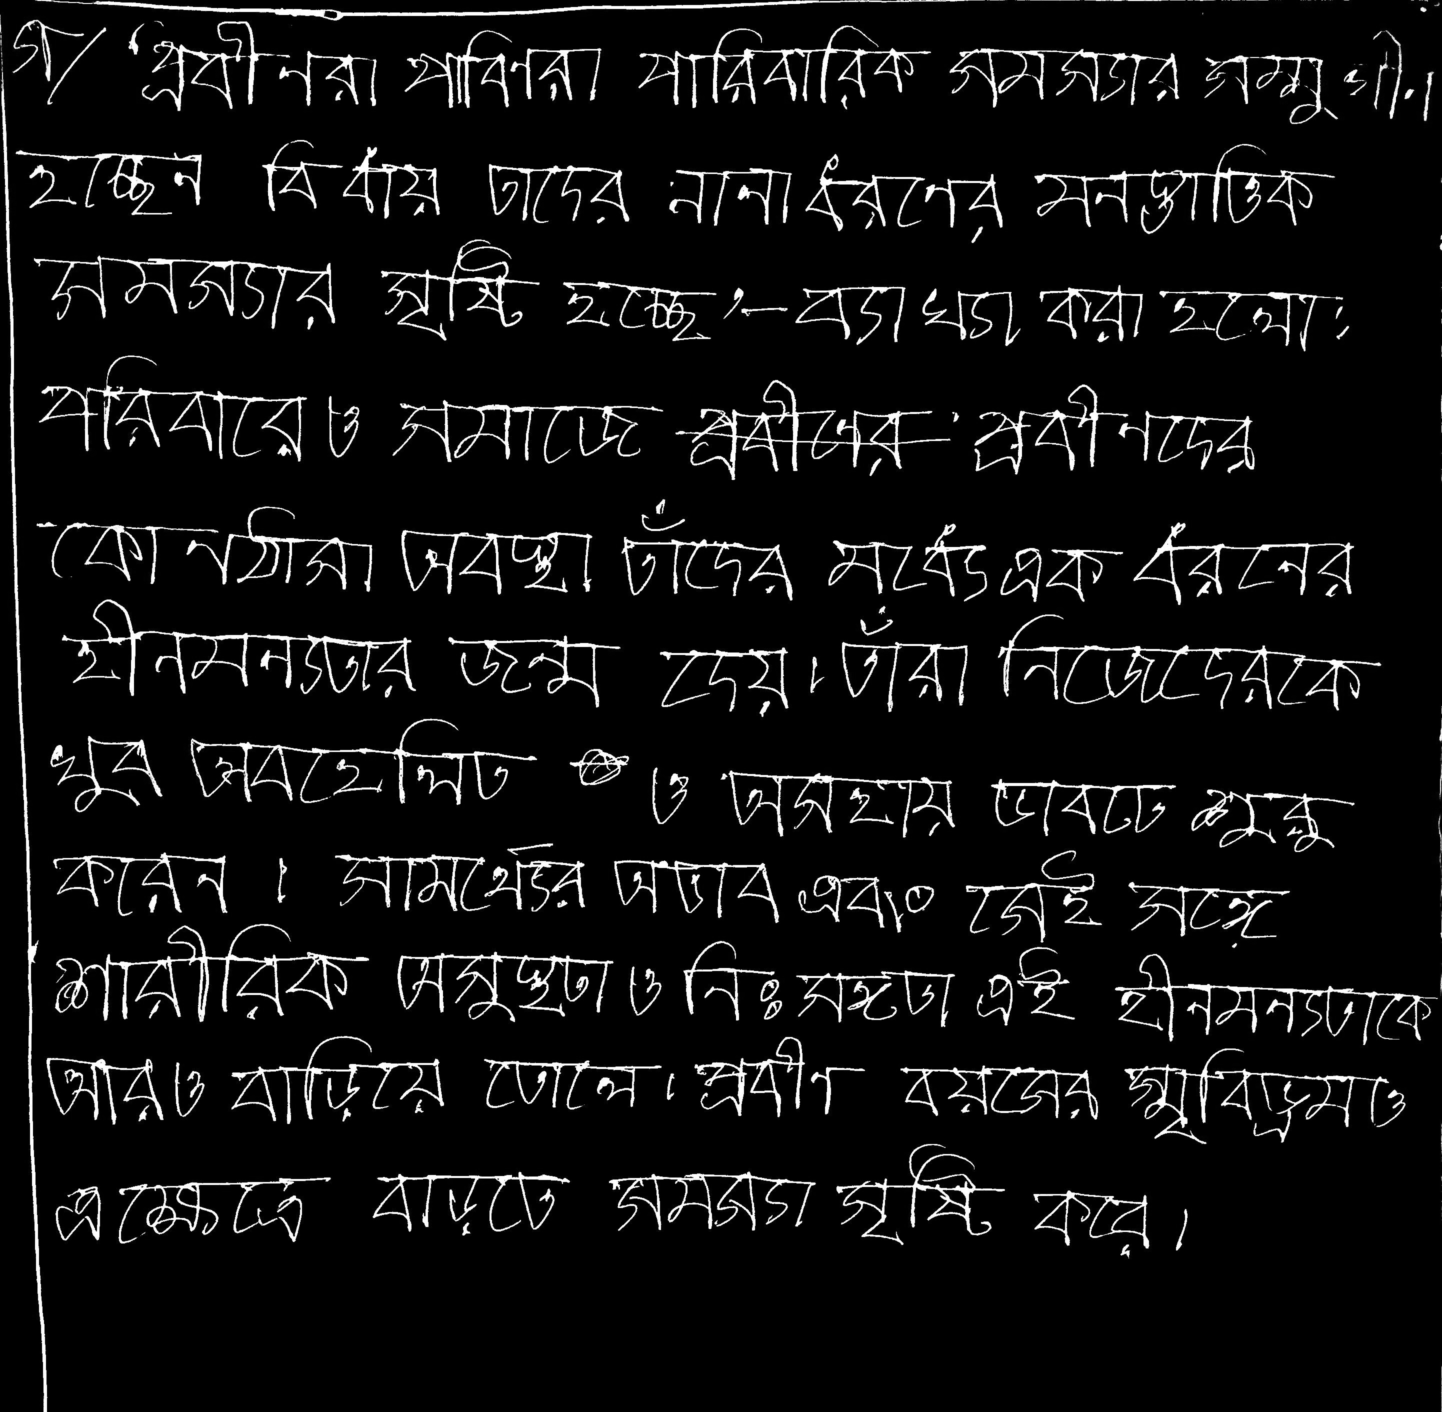 গ/ ‘প্রবীণরা পারিবারিক সমস্যার সম্মুখীন
হচ্ছেন বিধায় তাদের নানা ধরণের মনস্তাত্তিক
সমস্যার সৃষ্টি হচ্ছে’— ব্যাখ্যা করা হলো:
পরিবারে ও সমাজে প্রবীণের প্রবীণদের
কোনঠাসা অবস্থা তাঁদের মধ্যে এক ধরনের
হীনমন্যতার জন্ম দেয়। তাঁরা নিজেদেরকে
খুব অবহেলিত ও অসহায় ভাবতে শুরু
করেন। সামর্থ্যের অভাব এবং সেই সঙ্গে
শারীরিক অসুস্থতা ও নিঃসঙ্গতা এই হীনমন্যতাকে
আরও বাড়িয়ে তোলে। প্রবীণ বয়সের স্মৃবিভ্রমও
এক্ষেত্রে বাড়তে সমস্যা সৃষ্টি করে।